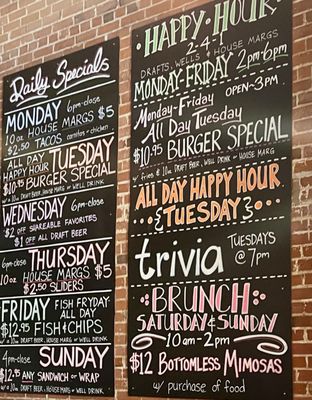 Daily Specials
MONDAY 6pm-close
10oz HOUSE MARGS $5
$2.50 TACOS carnitas + chicken
ALL DAY HAPPY HOUR TUESDAY
$10.95 BURGER SPECIAL
w/ a 10oz DRAFT BEER, HOUSE MARG or WELL DRINK
WEDNESDAY 6pm-close
$2 OFF SHAREABLE FAVORITES
$1 OFF ALL DRAFT BEER
6pm-close THURSDAY
10oz HOUSE MARGS $5
$2.50 SLIDERS
FRIDAY FISH FRYDAY ALL DAY
$12.95 FISH & CHIPS
w/ a 10oz DRAFT BEER, HOUSE MARG or WELL DRINK
4pm-close SUNDAY
$12.95 ANY SANDWICH or WRAP
w/ a 10oz DRAFT BEER, HOUSE MARG or WELL DRINK
HAPPY HOUR
2-4-1
DRAFTS, WELLS & HOUSE MARGS
MONDAY-FRIDAY 2pm-6pm
Monday-Friday OPEN-3PM
All Day Tuesday
$10.95 BURGER SPECIAL
w/ fries & 10oz DRAFT BEER, WELL DRINK or HOUSE MARG
ALL DAY HAPPY HOUR
TUESDAY
trivia TUESDAYS @ 7pm
BRUNCH
SATURDAY & SUNDAY
10am-2pm
$12 BOTTOMLESS MIMOSAS
w/ purchase of food